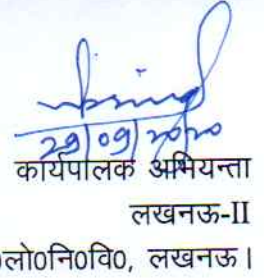 29/09/2020
कार्यपालक अभियन्ता
लखनऊ-II
लो0नि0वि0, लखनऊ।